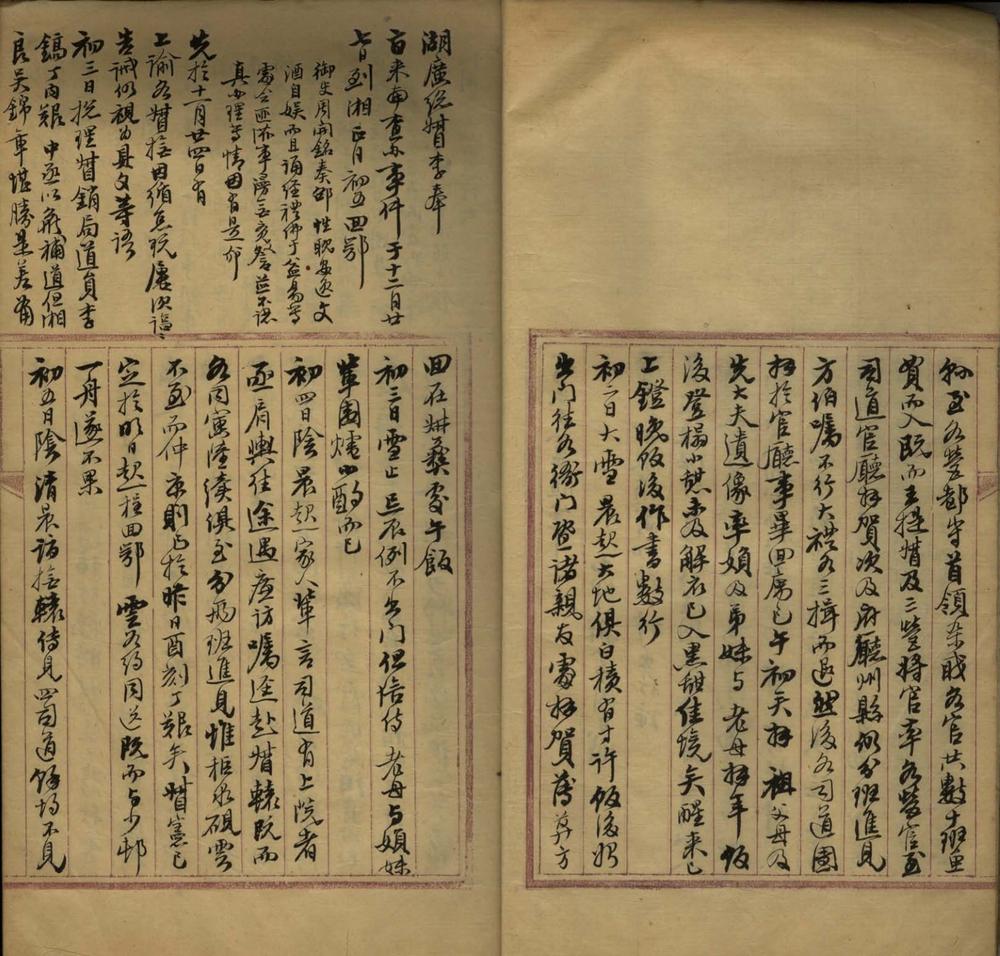 孫至各營都守首領杂職各官共數十班魚
貫而入既而至提督及二營將官率各營官至
司道官廳拜賀次及府廳州縣仍分班進見
方伯囑不行大禮各三揖而退然後各司道團
拜於官廳事畢回寓已午初矣拜祖父母及
先大夫遺像率婦及弟妹与老母拜年飯
後登榻小憩未及解衣已入黑甜佳境矣醒來已
上鐙晚飯後作書數行
初二日大雪晨起大地俱白積有寸許飯後始
出門往各衙門暨諸親友處拜賀薄莫方
回在 午飯
初三日雪止忌辰例不出門但陪侍老母与婦妹
輩圍爐小酌而已
初四日陰晨起家人輩言司道有上院者
亟肩輿往途遇廉訪囑逕赴督轅既而
各同寅陸續俱至分兩班進見惟柜泉硯雲
不至而仲京則已於昨日酉刻丁艱矣督憲已
定於明日起程回鄂雲各約同送既而与少邨
一商遂不果
初五日陰清晨詣撫轅侍見四司道餘均不見
湖廣總督李奉
旨來南查办事件于十二月廿
七日到湘正月初五回鄂
御史周開銘奏邵性耽安逸文
酒自娱而且誦經禮佛于益陽等
處会匪滋事漫無覺察並不認
真办理等情因有是命
先於十一月廿四日有
上諭各督撫因循怠玩屢次諭
告誡仍視为具文等語
初三日悦理督銷局道員李
鎬丁内艱中丞以 補道但湘
良吴錦章堪勝是差